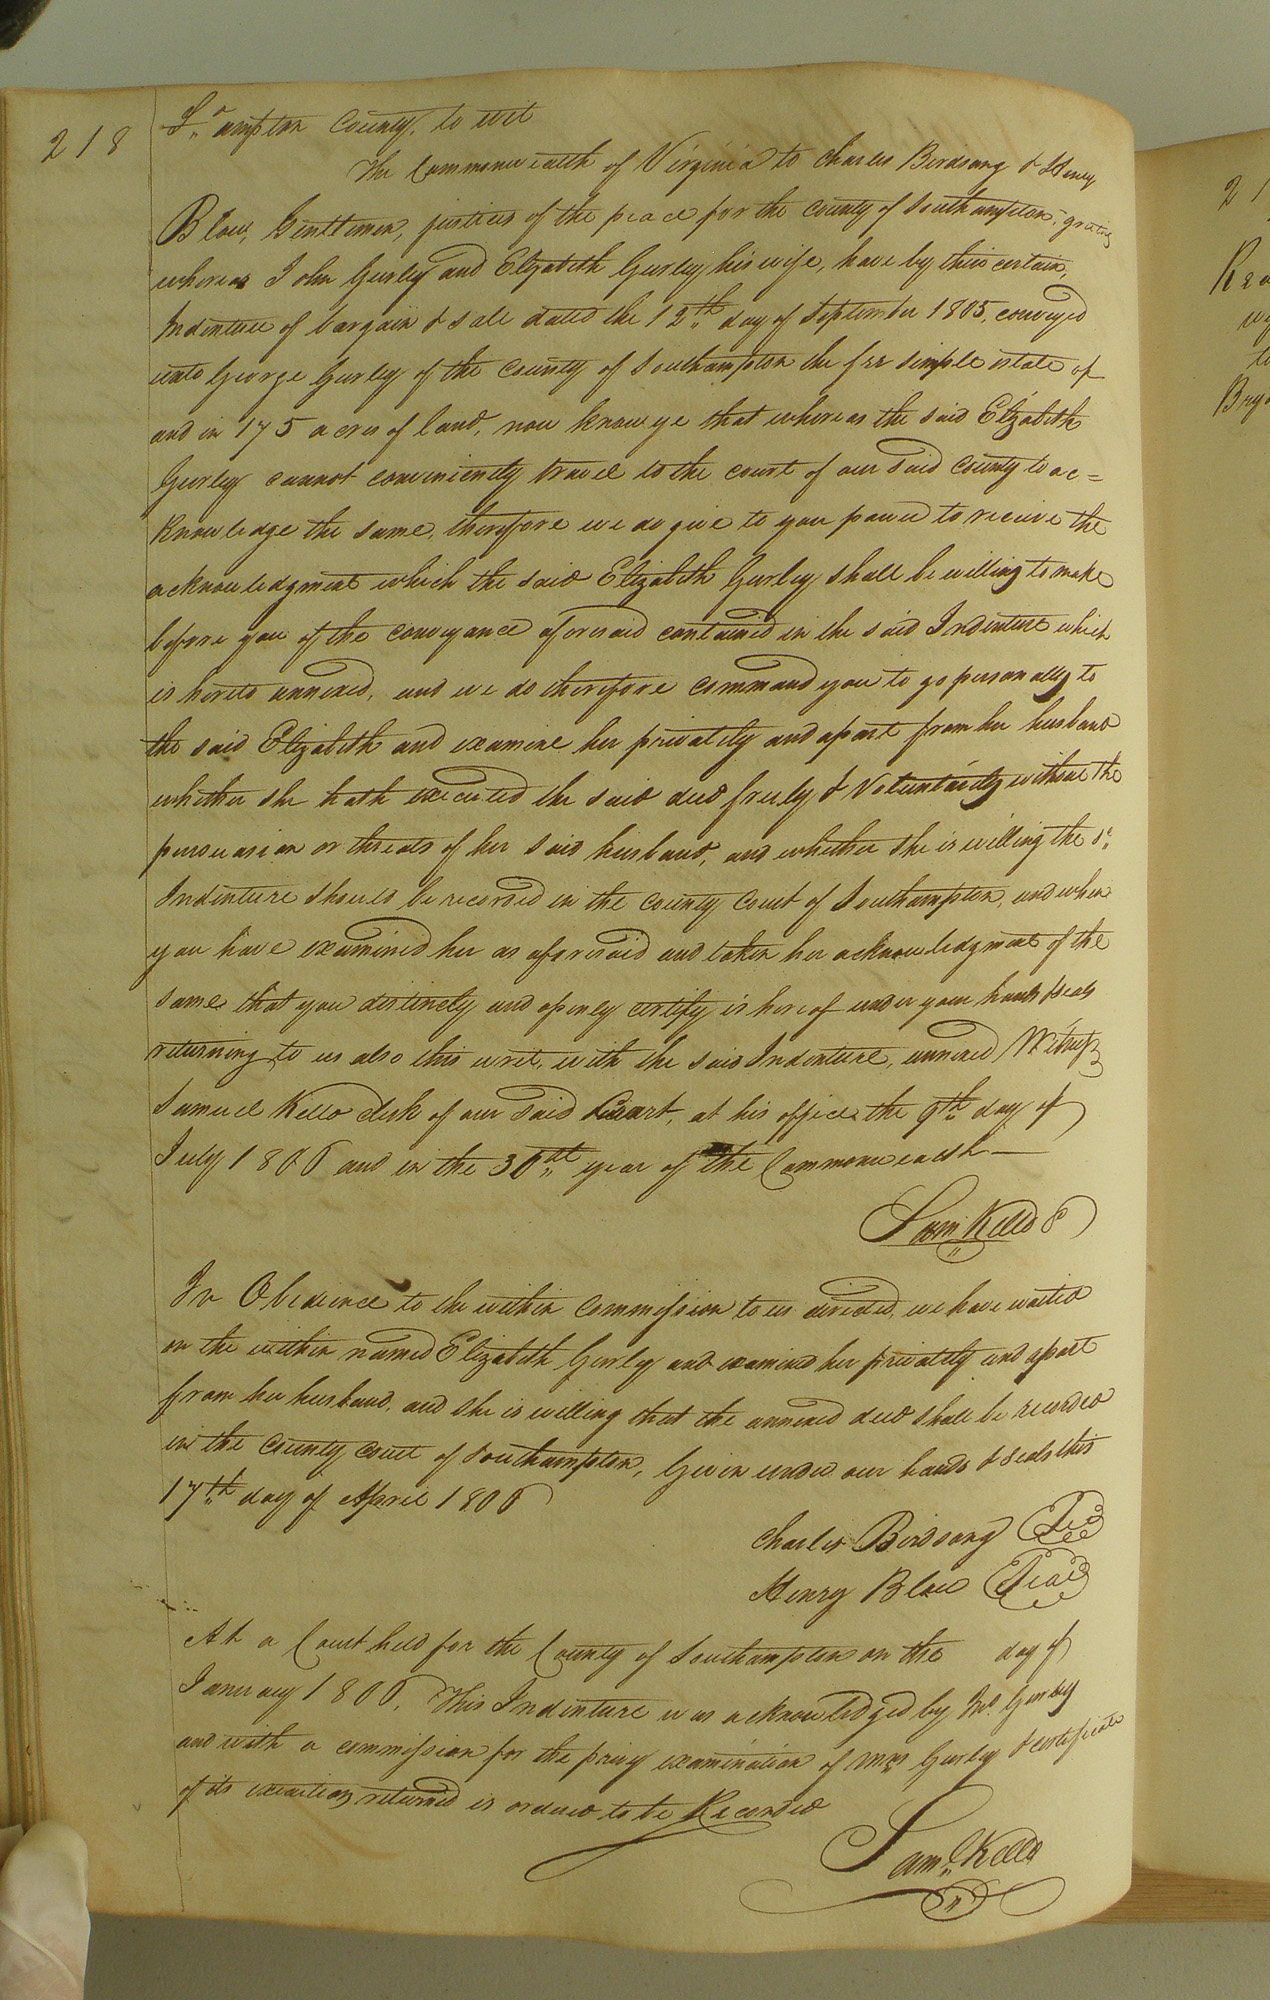 218
So ampton County, to wit
The Commonwealth of Virginia to Charles Birdsong & Henry
Blow, Gentlemen, justices of the peace for the county of Southampton, greeting
whereas John Gurley and Elizabeth Gurley his wife, have by their certain
Indenture of bargain & sale dated the 12th day of September 1805, conveyed
unto George Gurley of the county of Southampton the fee simple estate of
and in 175 acres of land, now know ye that whereas the said Elizabeth
Gurley cannot conveniently travel to the court of our said County to ac=
knowledge the same, therefore we do give to you power to receive the
acknowledgment which the said Elizabeth Gurley shall be willing to make
before you of the conveyance aforesaid contained in the said Indenture which
is hereto annexed, and we do therefore command you to go personally to
the said Elizabeth and examine her privately and apart from her husband
whether she hath executed the said deed freely & Voluntarily without the
persuasion or threats of her said husband, and whether she is willing the sd.
Indenture should be recorded in the county court of Southampton, and when
you have examined her as aforesaid and taken her acknowledgment of the
same that you distinctly and openly certify is hereof under your hands & seals
returning to us also this writ, with the said Indenture, annexed Witness
Samuel Kello clerk of our said Court, at his office the 9th day of
July 1806 and in the 30th year of the Commonwealth —
Sam Kello C
In Obedience to the within Commission to us directed, we have waited
on the within named Elizabeth Gurley and examined her privately and apart
from her husband, and she is willing that the annexed deed shall be recorded
in the county court of Southampton, Given under our hands & seals this
17th day of April 1806
Charles Birdsong Seal
Henry Blow Seal
At a Court held for the County of Southampton on the day of
January 1806, This Indenture was acknowledged by Jno. Gurley
and with a commission for the privy examination of Mrs Gurley & certificate
of its execution returned is ordered to be Recorded
Saml. Kello
21